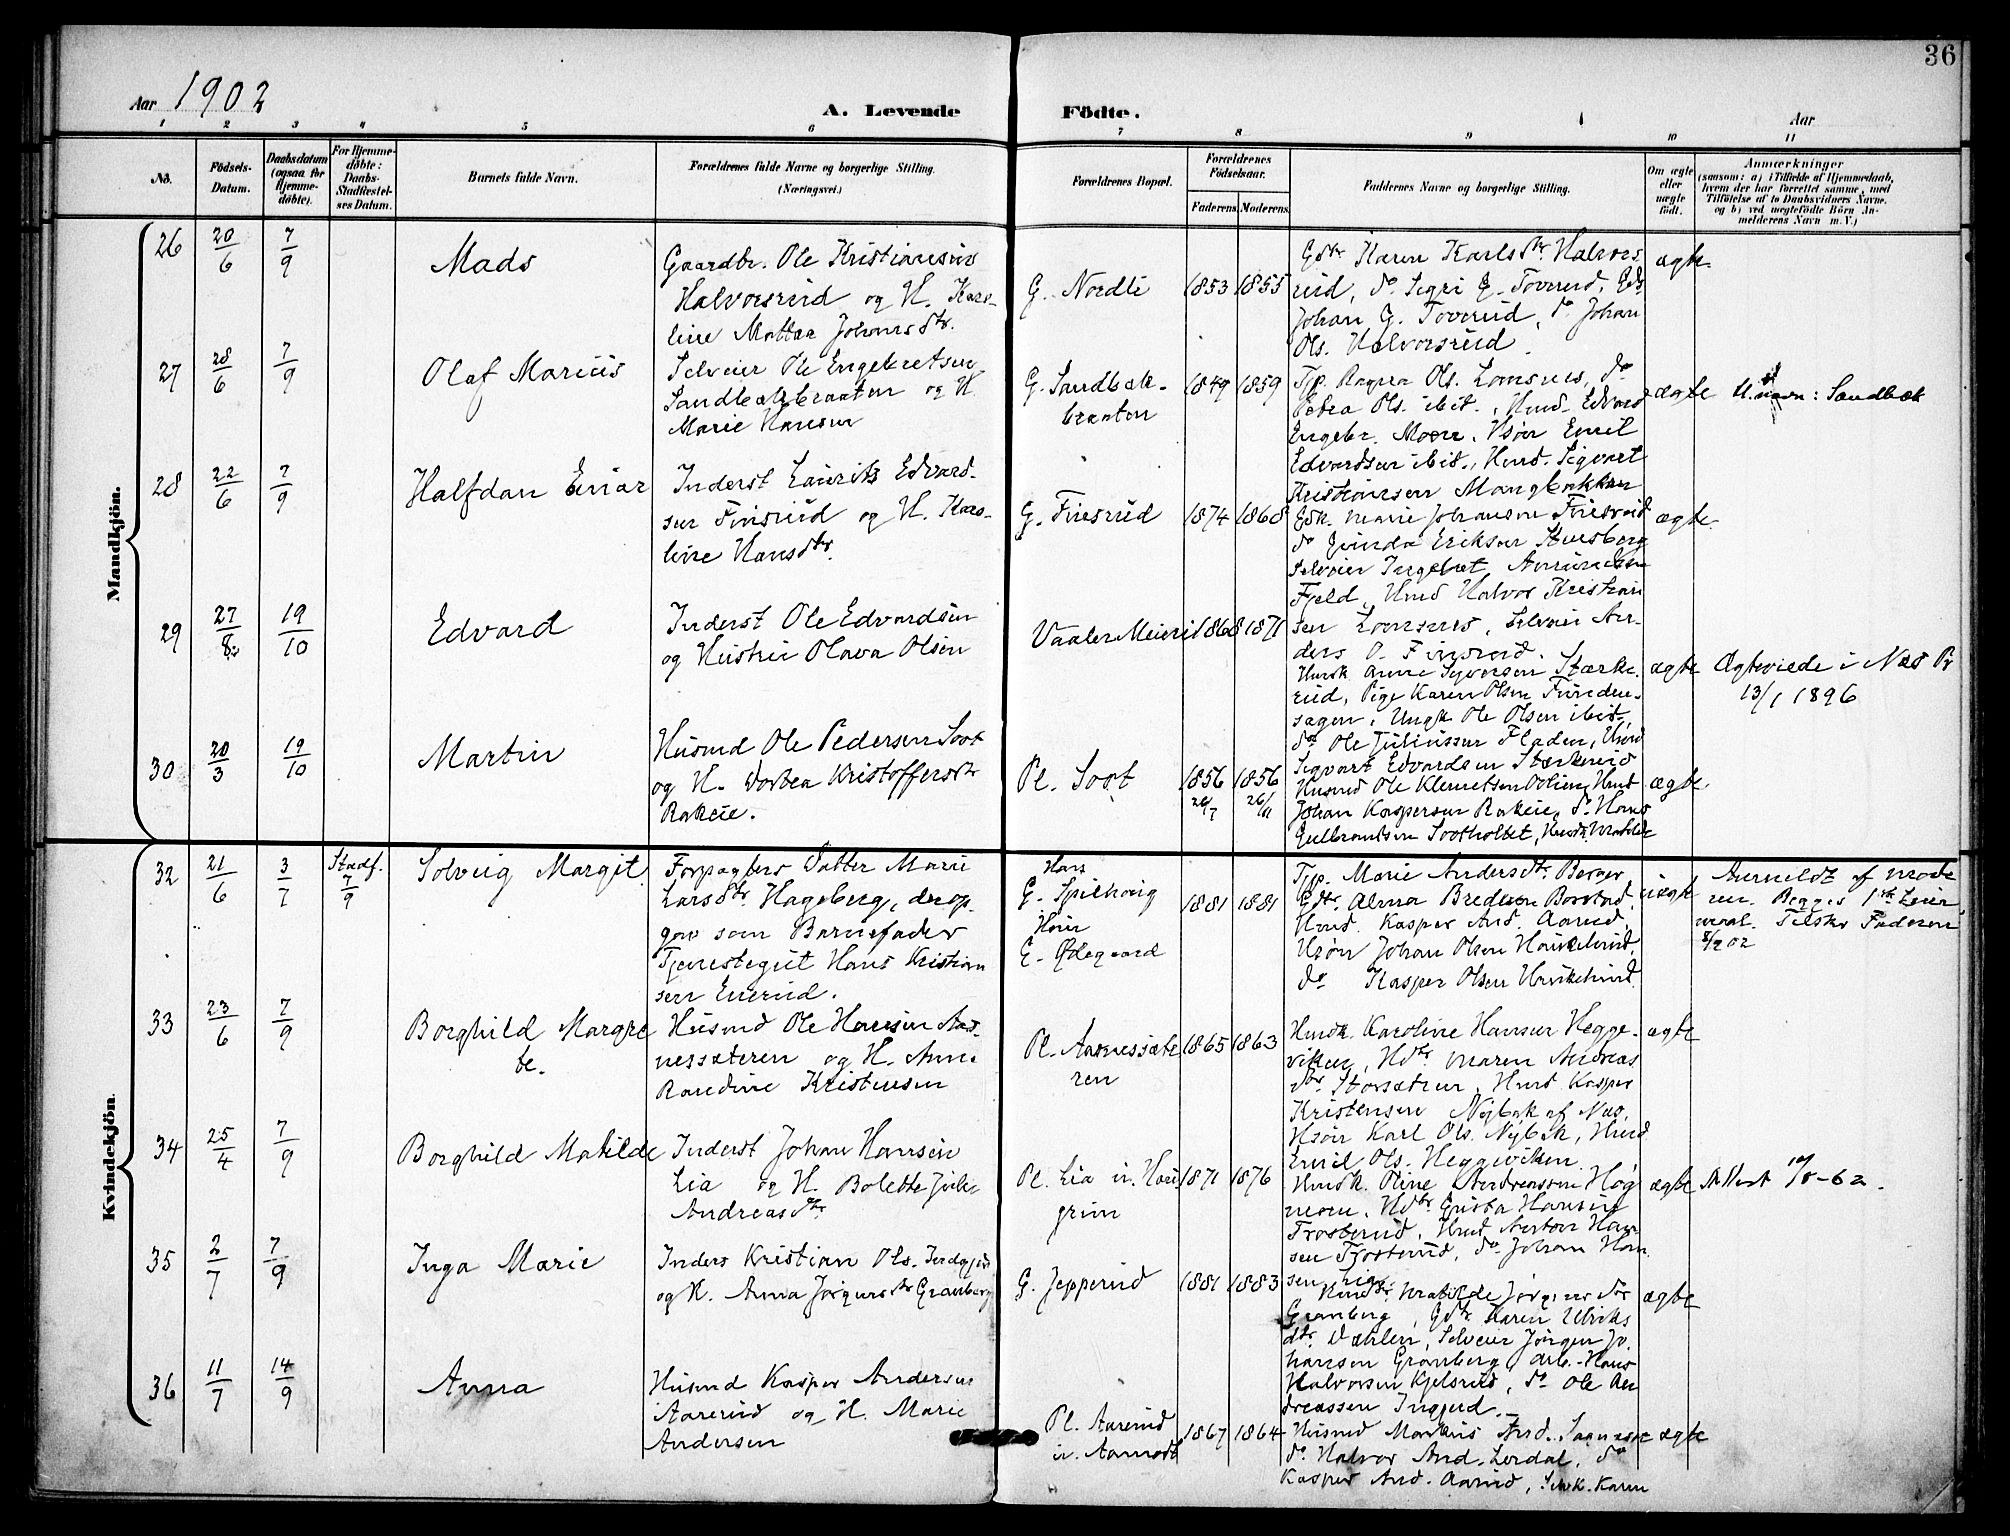 36
Aar 1902
A. Levende Födte.
Aar
1 2 3 4 5 6 7 8 9 10 11
No.
Födsels-Datum.
Daabsdatum (ogsaa for Hjemme-döbte).
For Hjemme-döbte: Daabs-Stadfæstel-ses Datum.
Barnets fulde Navn.
Forældrenes fulde Navne og borgerlige Stilling. (Næringsvei.)
Forældrenes Bopæl.
Forældrenes Födselsaar.
Faderens. Moderens.
Faddernes Navne og borgerlige Stilling.
Om ægte eller uægte født.
Anmærkninger
(saasom: a) i Tilfælde af Hjemmedaab,
hvem der har forrettet samme, med
Tilföielse af to Daabsvidners Navne.
og b) ved uægtefödte Börn An-
melderens Navn m. V.)
Mandkjön.
26 20/6 7/9 Mads
Gaardbr. Ole Kristiansen
Halvorsrud og H. Karo-
line Mathea Johannesdtr.
G. Nordli 1853 1855
Gdtr Karen Karlsdtr Halvors
rud, do G. Toverud,
Johan G. Toverud, do Johan
Ols. Halvorsrud.
ægte
27 28/6 7/9 Olaf Marius
Selveier Ole Engebretsen
Sandbækbraaten og H.
Marie Hansen
G. Sandbæk-
braaten 1849 1859
Tjp. Ragna Ols. Lomsnes, do
Petra Ols. ibid., Hmd. Edvard
Engebr. Moen, Hsön Emil
Edvardsen ibid., Hmd. Sigvart
Kristiansen Mangbakken
ægte
navn: Sandbæk
28 22/6 7/9 Halfdan Einar
Inderst Laurits Edvard-
sen Finsrud og H. Karo-
line Hansdtr.
G. Finsrud 1874 1868
Gdk. Marie Johansen Finsrud
do Eriksen
Selveier Ingebret
Fjeld, Hmd Halvor Kristian
sen Lomsnes, Selveier An-
ders O. Finsrud.
ægte
29 27/8 19/10 Edvard
Inderst Ole Edvardsen
og Hustru Olava Olsen
Vaaler Meieri 1868 1871
Husk. Anne Syversen Stærke-
rud, Pige Karen Olsen
sagen, Ungk. Ole Olsen ibid.,
do Ole Juliussen Fladen, Hmd
Sigvart Edvardsen Stærkerud
ægte
Ægteviede i Næs Pr
13/1 1896
30 20/3 19/10 Martin
Husmd Ole Pedersen Soot
og H. Dorthea Kristoffersdtr
Rakeie.
Pl. Soot 1856 1856
Husmd Ole Klemetsen Hmd
Johan Kaspersen Rakeie, do Hans
Gulbrandsen Sootholtet,
ægte
Kvindekjön.
32 21/6 3/7 Stadf. 7/9 Solveig Margit
Forpagters Datter Marie
Larsdtr Hageberg, der op-
gav som Barnefader
Tjenestegut Hans Kristian
sen Enerud.
Hans
G. Spilhaug
Hun
G. Ødegaard 1881 1881
Tjp. Marie Andersdtr Berger,
Gdtr. Alma Bredesen Borstad,
Hmd. Kasper And. Aarud,
Hsøn Johan Olsen Haukelund,
do Kasper Olsen Haukelund.
uægte
Anmeldt af Mode
ren. Begges 1ste Leier-
maal. Tilskr Faderen
8/9 02
33 23/6 7/9 Borghild Margre
te.
Husmd Ole Hansen Aas-
næssæteren og H. Anne
Randine Kristensen
Pl. Aasnessæte
ren 1865 1863
Husk. Karoline Hansen Hegge-
viken, Hdtr Maren Andreas
dtr. Storsætren, Hmd Kasper
Kristensen Nybak af Næs,
Hsøn Karl Ols. Nybak, Hmd
Emil Ols. Heggeviken
ægte
34 25/4 7/9 Borghild Matilde
Inderst Johan Hansen
Lia og H. Bolette
Andreasdtr
Pl. Lia u. Hau
grim 1871 1876
Husk. Oline Andreassen Hog
moen, Hdtr Gusta Hansen
Frosterud, Hmd Anton Han
sen Frosterud, do Johan Han
sen
ægte
Attest 10/8-62.
35 2/7 7/9 Inga Marie
Inders Kristian Ols.
og K. Anna Jørgensdtr Granberg
G. Jepperud 1881 1883
Matilde Jørgensdtr
Granberg, Gdtr Karen Ulriks
dtr. Dæhlen, Selveier Jörgen Jo
hansen Granberg, Arb. Hans
Halvorsen Kjelsrud, do Ole An
dreassen
ægte
36 11/7 14/9 Anna
Husmd Kasper Andersen
Aarerud og H. Marie
Andersen
Pl. Aarerud
u. Aamodt 1867 1864
Husmd Markus And.
do Halvor And. Lerdal, do
Kasper And. Aarud, Karen
ægte